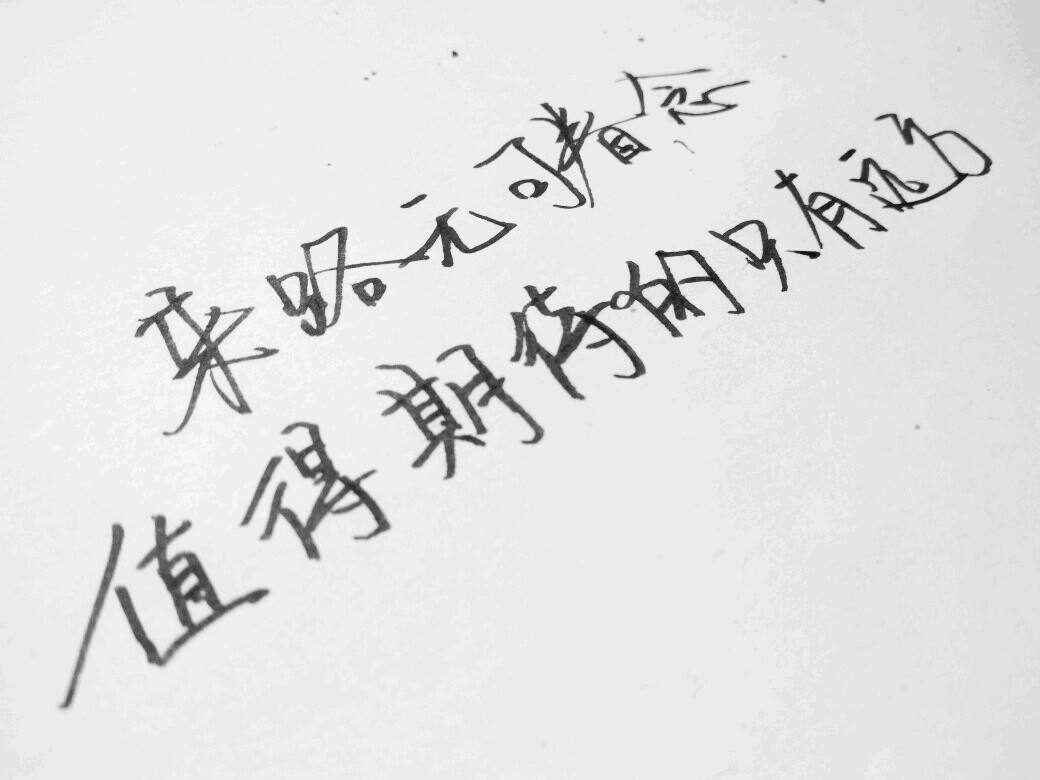 来路无可眷恋
值得期待的只有远方